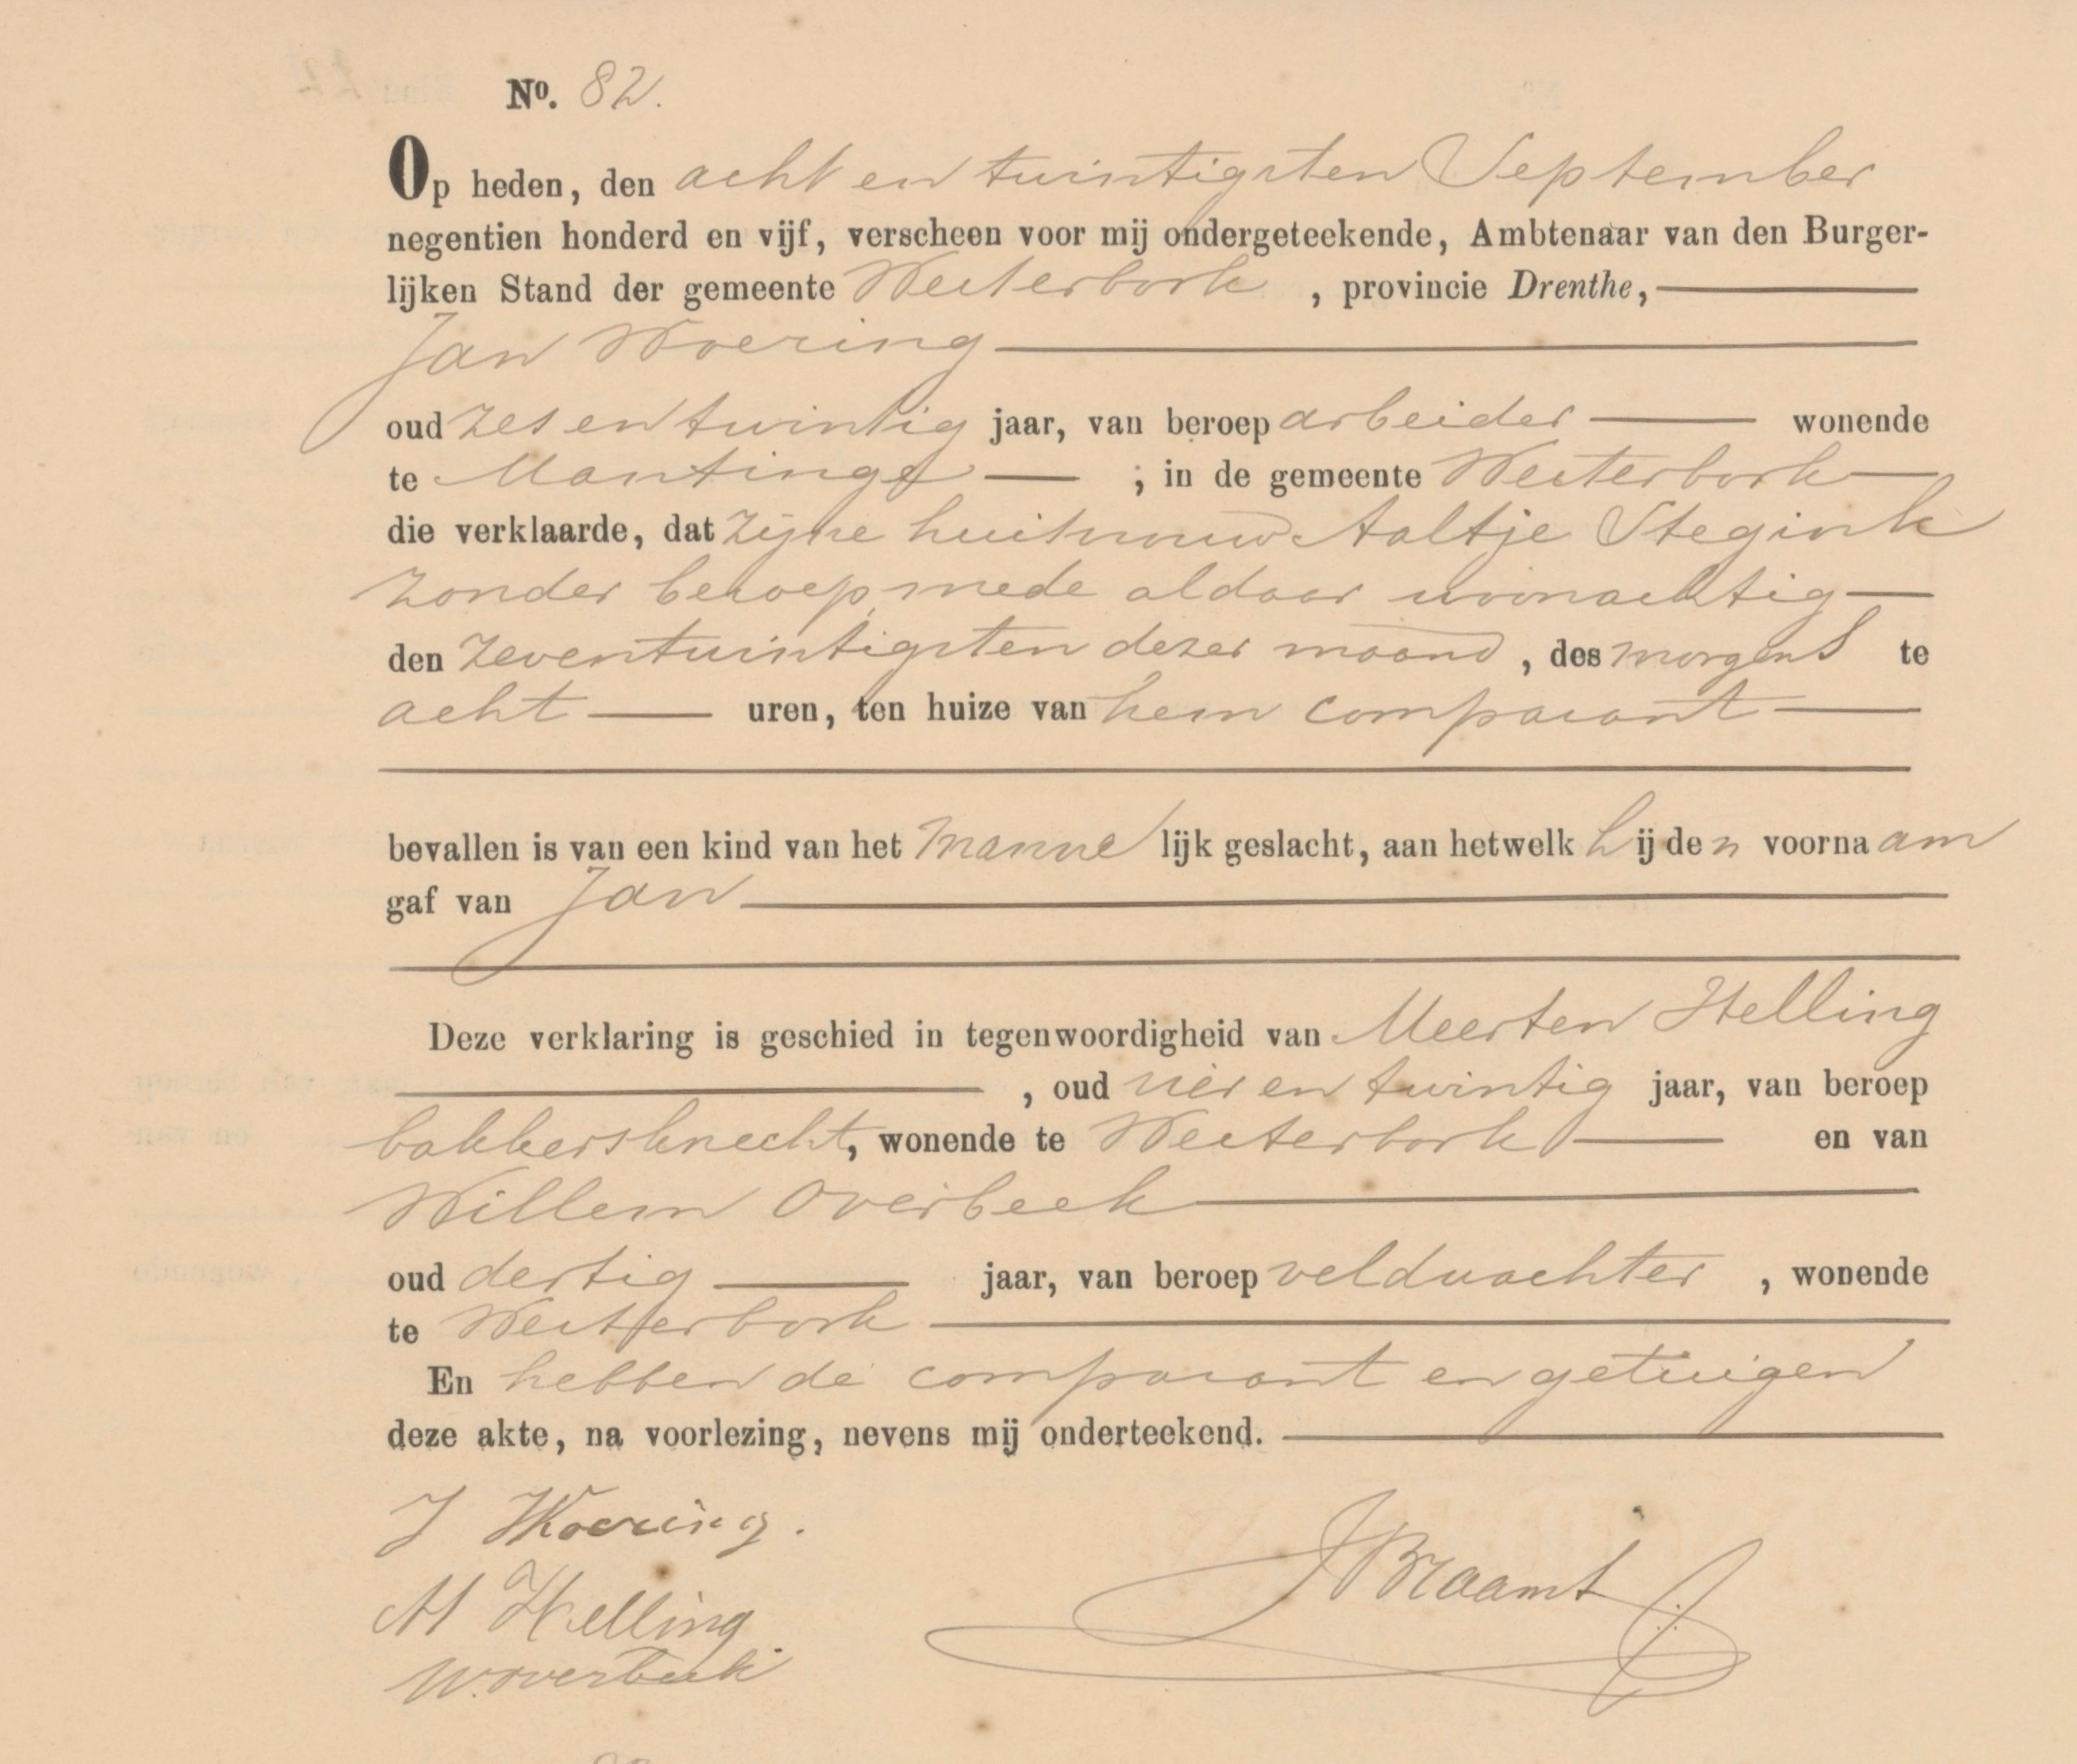 No. 82.
Op heden, den acht en twintigsten September
negentien honderd en vijf, verscheen voor mij ondergeteekende, Ambtenaar van den Burger-
lijken Stand der gemeente Westerbork, provincie Drenthe,
Jan Woering
oud zes en twintig jaar, van beroep arbeider wonende
te Mantinge ; in de gemeente Westerbork
die verklaarde, dat zijne huisvrouw Aaltje Stegink
zonder beroep, mede aldaar woonachtig
den zeventwintigsten dezer maand, des morgens te
acht uren, ten huize van hem comparant
bevallen is van een kind van het mannelijk geslacht, aan hetwelk hij den voornaam
gaf van Jan
Deze verklaring is geschied in tegenwoordigheid van Meerten Helling
, oud vier en twintig jaar, van beroep
bakkersknecht, wonende te Westerbork en van
Willem Overbeek
oud dertig jaar, van beroep veldwachter, wonende
te Westerbork
En hebben de comparant en getuigen
deze akte, na voorlezing, nevens mij onderteekend.
J Woering.
M Helling
W. Overbeek